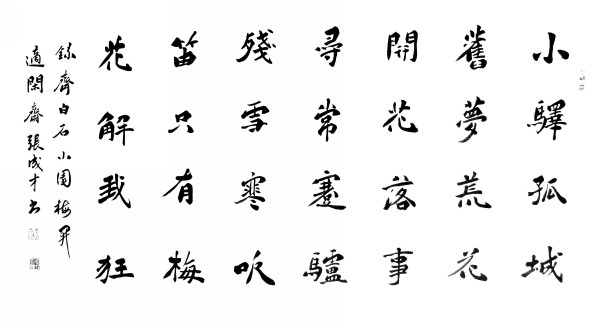 小驛孤城
舊夢荒花
開花落事
尋常蹇驢
殘雪寒吹
笛只有梅
花解我狂
錄齊白石小園梅開
適閑齋張成才書